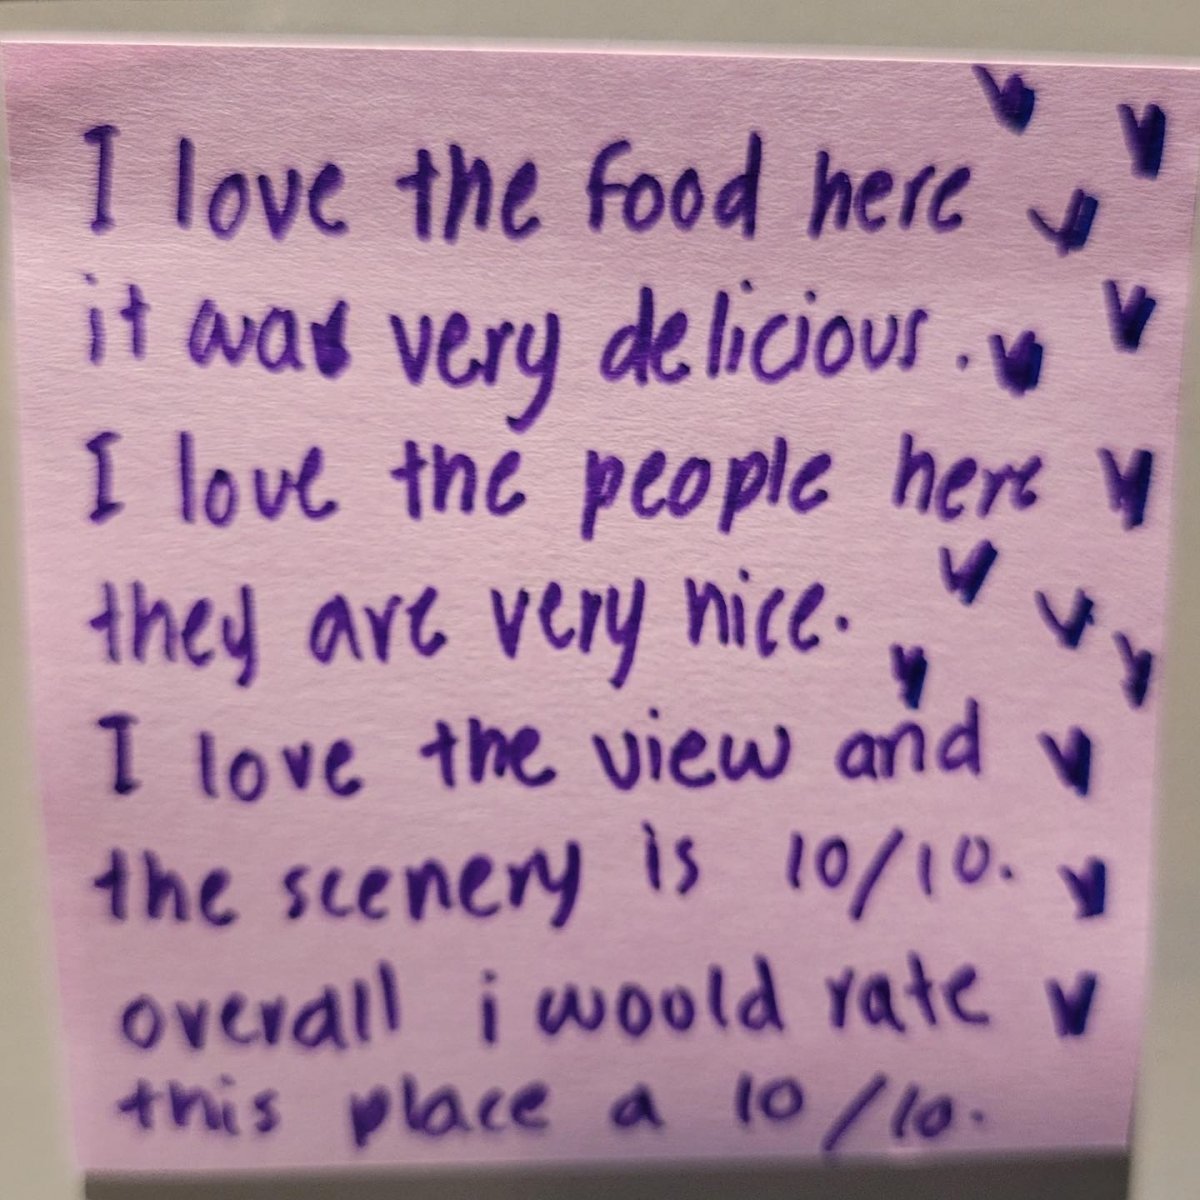 I love the food here
it was very delicious.
I love the people here
they are very nice.
I love the view and
the scenery is 10/10.
overall i woold rate
this place a 10/10.